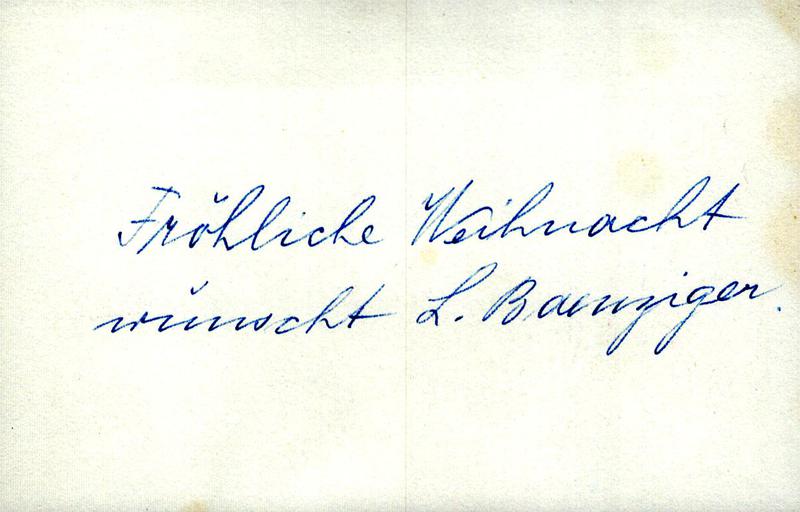 Fröhliche Weihnacht
wünscht L. Baenziger.